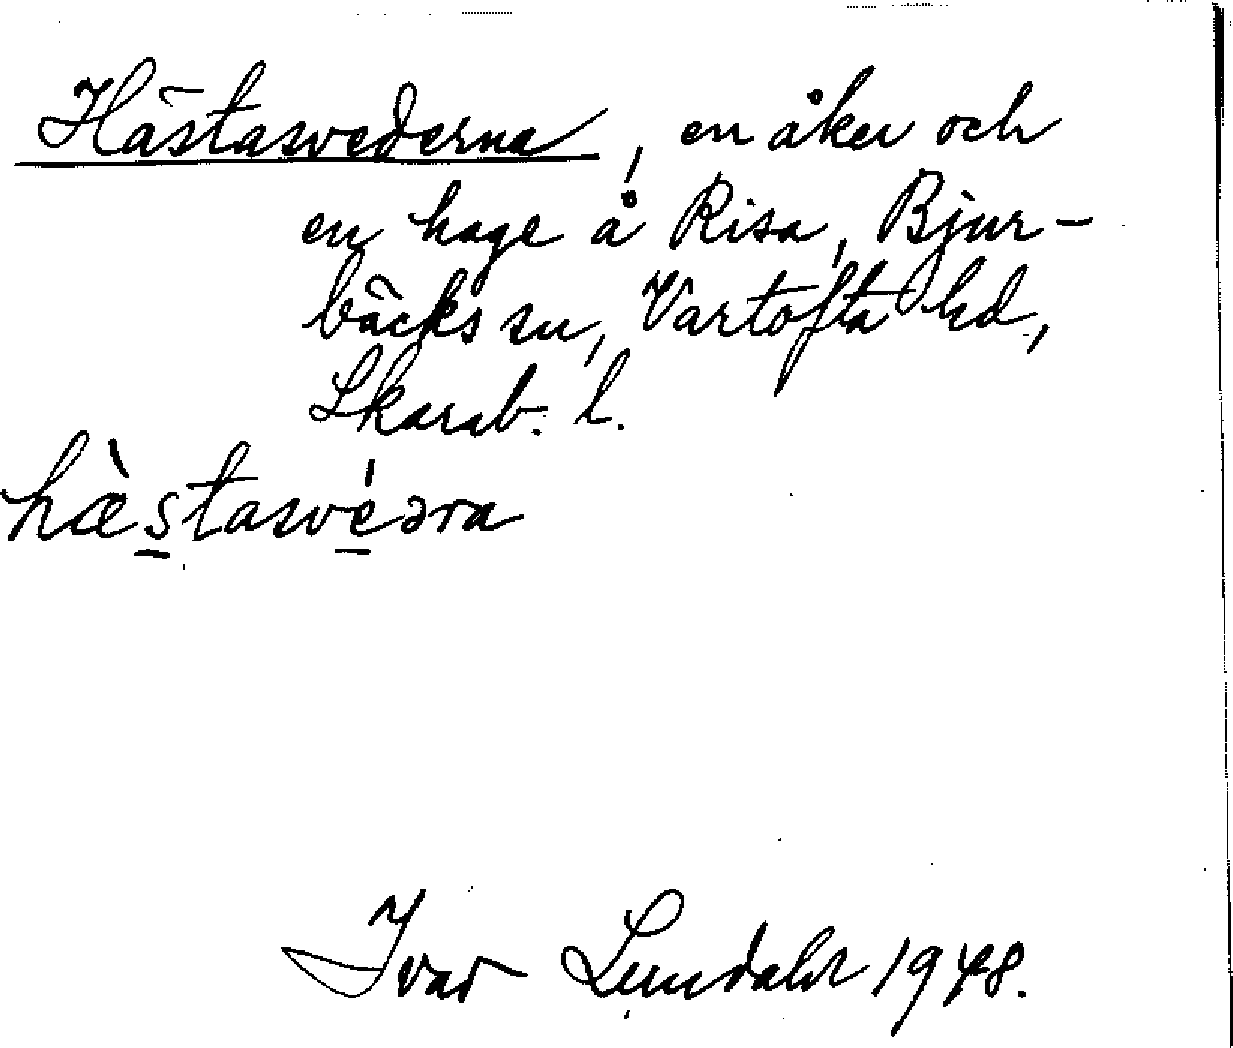 Hästasvederna, en åker och
en hage å Risa, Bjur-
bäcks sn, Vartofta hd,
Skarab. l.
hæ̀stasvédra
Ivar Lundahl 1948.